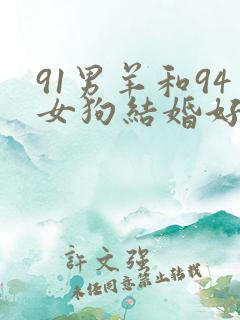 91男羊和94
女狗結婚好
許文强
未经同意禁止转载